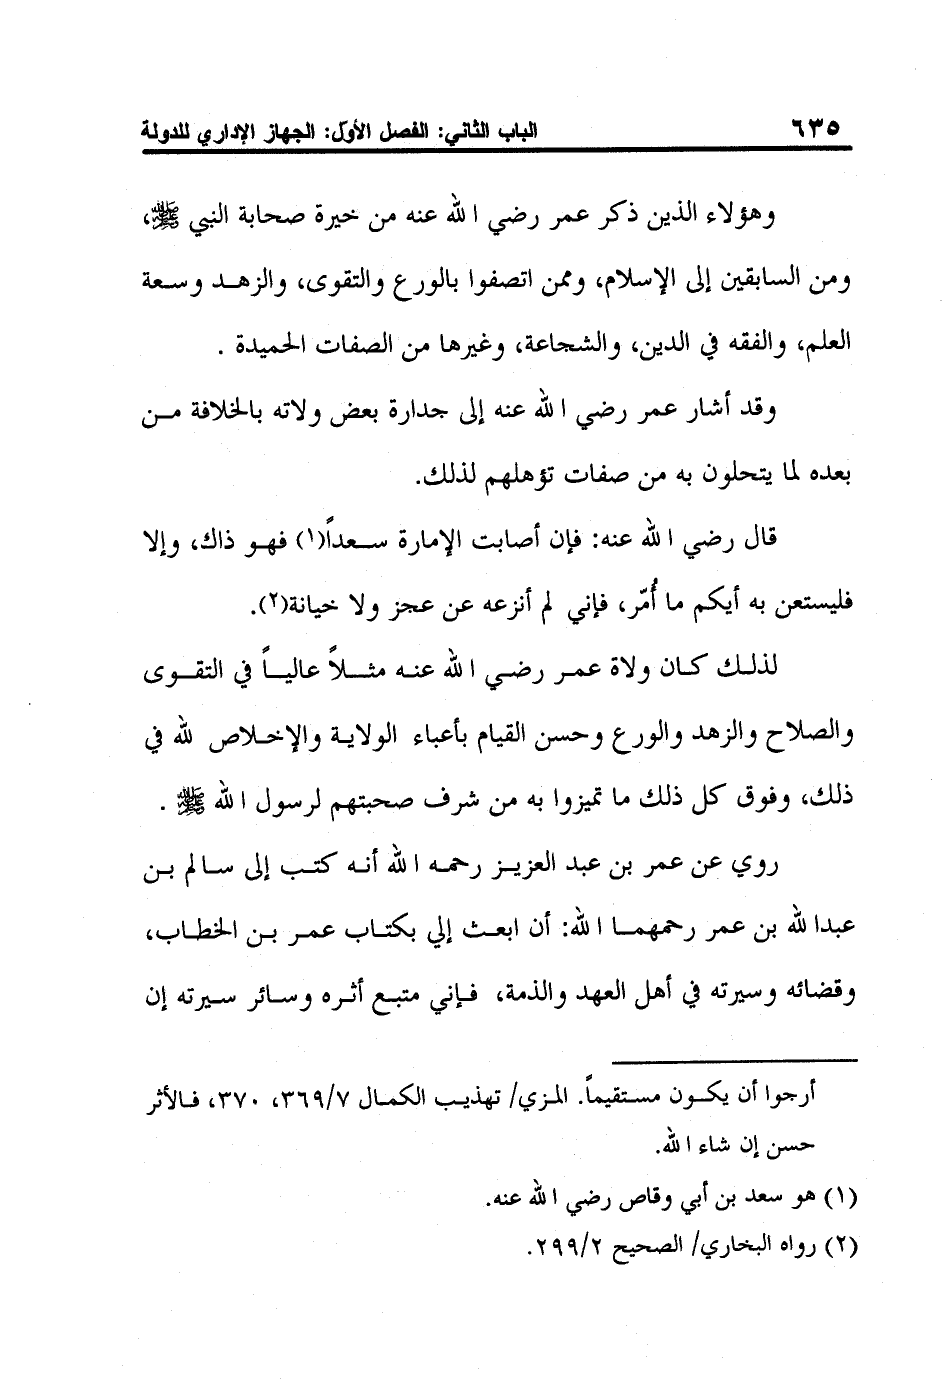 ٦٣٥ الباب الثاني: الفصل الأوّل: الجهاز الإداري للدولة
وهؤلاء الذين ذكر عمر رضي الله عنه من خيرة صحابة النبي ﷺ،
ومن السابقين إلى الإسلام، وممن اتصفوا بالورع والتقوى، والزهد وسعة
العلم، والفقه في الدين، والشجاعة، وغيرها من الصفات الحميدة .
وقد أشار عمر رضي الله عنه إلى جدارة بعض ولاته بالخلافة من
بعده لما يتحلون به من صفات تؤهلهم لذلك.
قال رضي الله عنه: فإن أصابت الإمارة سعداً(١) فهو ذاك، وإلا
فليستعن به أيكم ما أُمّر، فإني لم أنزعه عن عجز ولا خيانة(٢).
لذلك كان ولاة عمر رضي الله عنه مثلاً عالياً في التقوى
والصلاح والزهد والورع وحسن القيام بأعباء الولاية والإخلاص لله في
ذلك، وفوق كل ذلك ما تميزوا به من شرف صحبتهم لرسول الله ﷺ .
روي عن عمر بن عبد العزيز رحمه الله أنه كتب إلى سالم بن
عبدالله بن عمر رحمهما الله: أن ابعث إلي بكتاب عمر بن الخطاب،
وقضائه وسيرته في أهل العهد والذمة، فإني متبع أثره وسائر سيرته إن
أرجوا أن يكون مستقيماً. المزي/ تهذيب الكمال ٣٦٩/٧، ٣٧٠، فالأثر
حسن إن شاء الله.
(١) هو سعد بن أبي وقاص رضي الله عنه.
(٢) رواه البخاري/ الصحيح ٢٩٩/٢.